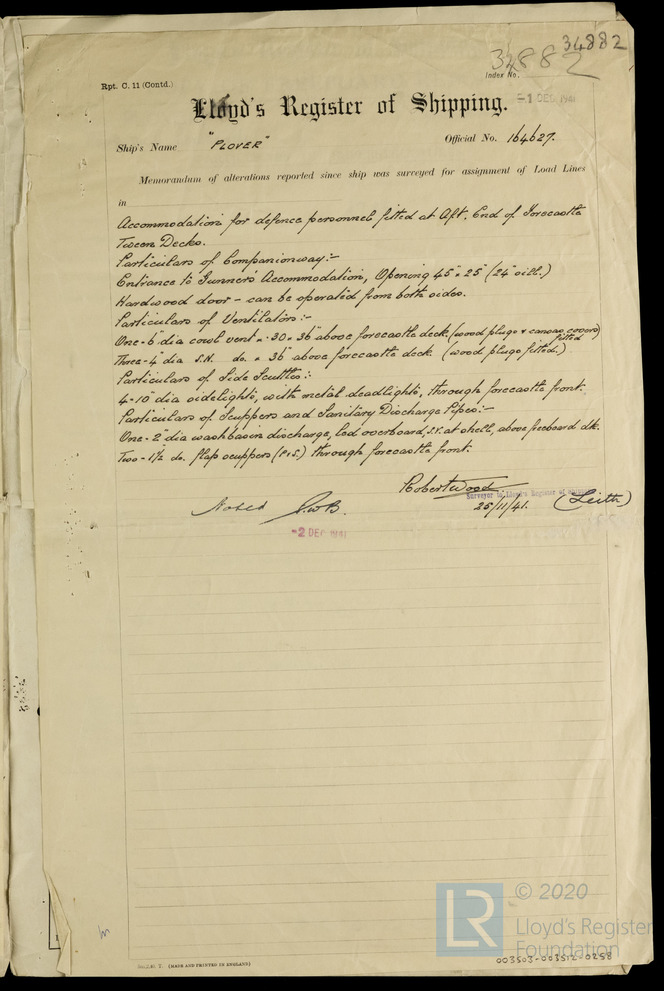 34882
34882
Rpt. C. 11 (Contd.)
Index No.
Lloyd's Register of Shipping.
-1 DEC 1941
Ship's Name "PLOVER"
Official No. 164627.
Memorandum of alterations reported since ship was surveyed for assignment of Load Lines
in
Accommodation for defence personnel fitted at Aft. End of Forecastle
Tween Decks.
Particulars of Companionway:-
Entrance to Gunners Accommodation, Opening 45" x 25" (24" sill.)
Hardwood door - can be operated from both sides.
Particulars of Ventilators:-
One-6" dia cowl vent x .30 x 36" above forecastle deck. (wood plugs & canvas covers) fitted
Three-4" dia S.N. do. x 36" above forecastle deck (wood plugs fitted.)
Particulars of Side Scuttles:-
4-10 dia sidelights, with metal deadlights, through forecastle front.
Particulars of Scuppers and Sanitary Discharge Pipes:-
One-2" dia washbasin discharge, led overboard, S.V. at shell, above freeboard dk.
Two-1½ do. flap scuppers (P&S.) through forecastle front.
Robert Wood
Surveyor to Lloyd's Register of Shipping
25/11/41. (Leith)
Noted
-2 DEC 1941
(MADE AND PRINTED IN ENGLAND)
LR © 2020
Lloyd's Register
Foundation
003503-003512-0258